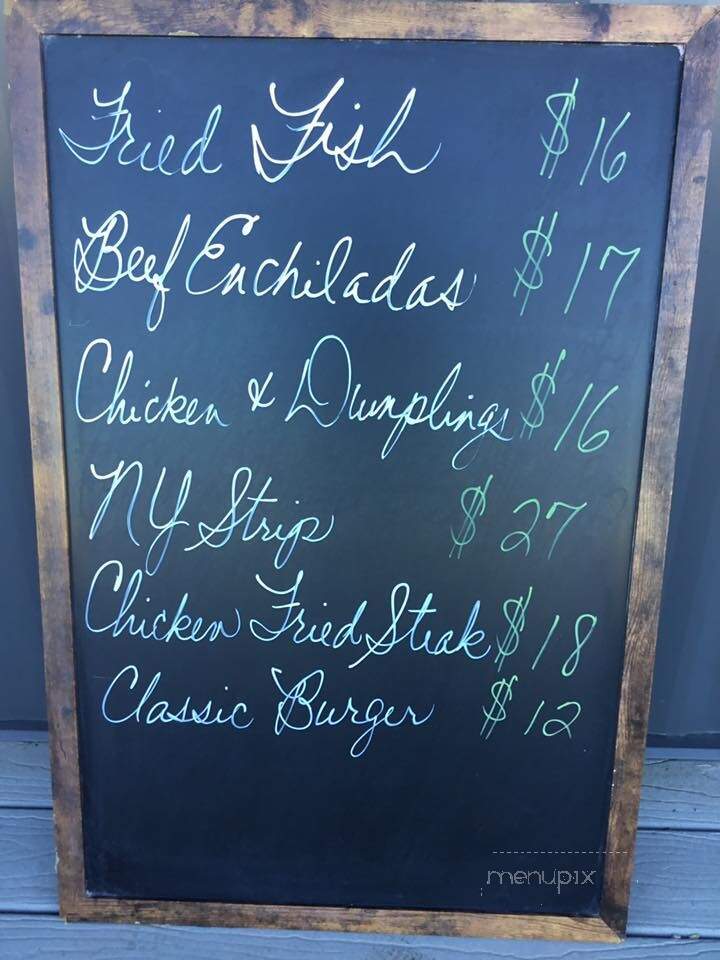 Fried Fish $16
Beef Enchiladas $17
Chicken & Dumplings $16
NY Strip $27
Chicken Fried Steak $18
Classic Burger $12
menupix